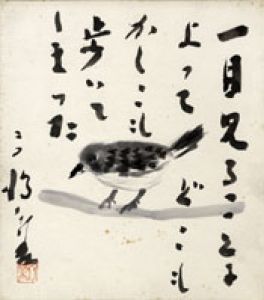 一目見ることに
よって どこも
かしこも
歩いて
しまった